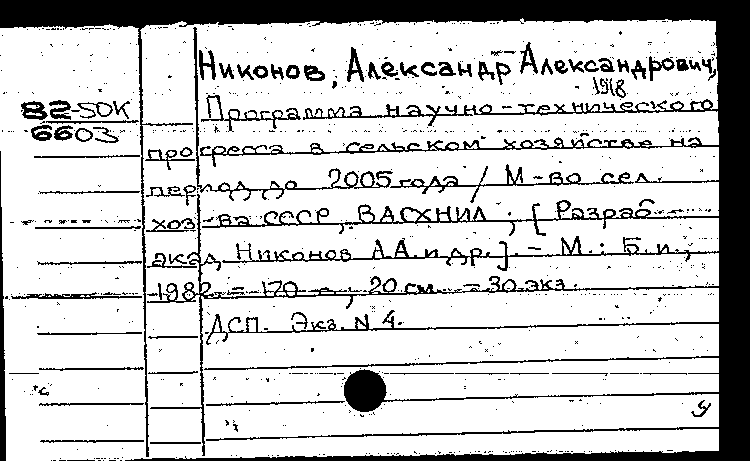 Никонов, Александр Александрович,
1918
82-50K
6603
Программа научно-технического
прогресса в сельском хозяйстве на
период до 2005 года / М-во сел.
хоз-ва СССР, ВАСХНИЛ ; [Разраб
акад. Никонов А.А. и др.]. - М. : Б. и.,
1982. - 170 с. ; 20 см. - 30 экз.
ДСП. Экз. N 4.